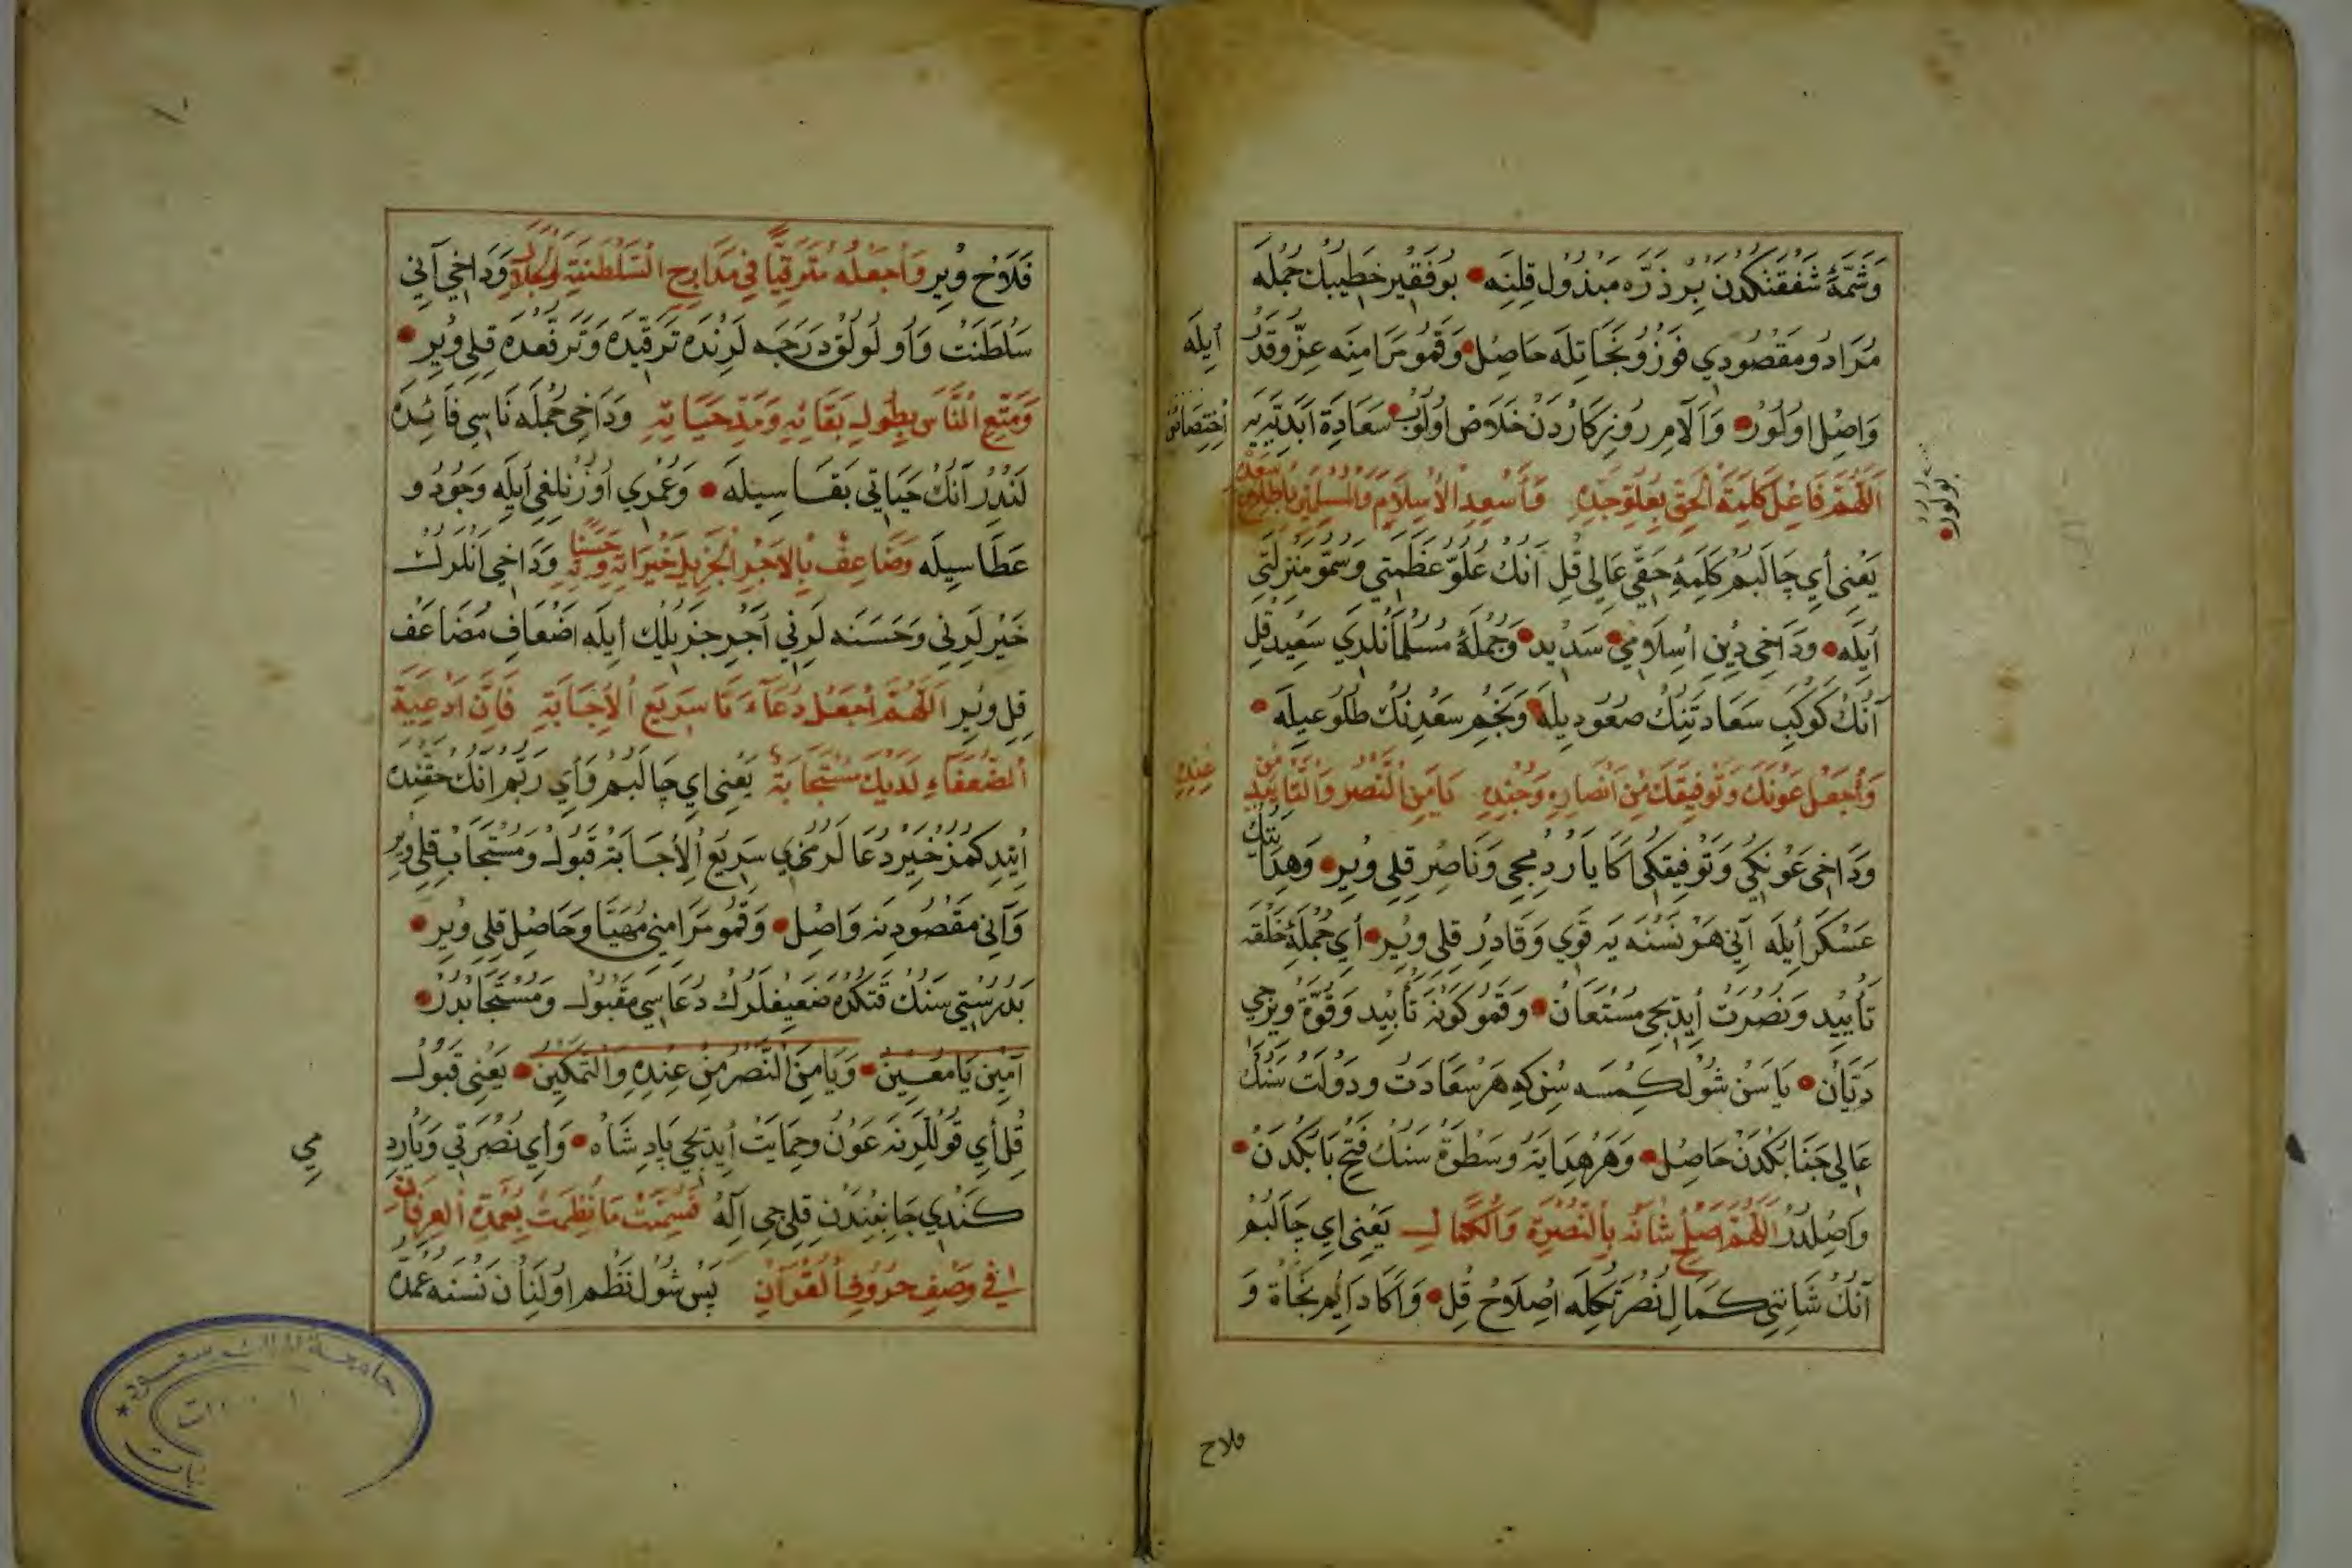 وَشَمَّهٔ شَفْقَتكدن بِرْ ذَرَّه مَبْذُول قِلِنِه • بُو فَقِير خَطِيبك جُمْلَه
مُرَاد و مَقْصُودِي فَوْز و نَجَاتِله حَاصِل • وَقَمُو مَرَامِنَه عِزّ و قَدْ
أيله
وَاصِل اولور • وَآلَامِ رُوزِكَارْدَنْ خَلَاصْ اولوب • سَعَادَةِ اَبَدِيَّه يه
اختصاص
بولور •
اَللّٰهُمَّ فَاعْلِ كَلِمَةَ الْحَقِّ بِعُلُوِّ جَدِّهِ وَأَسْعِدِ الْاِسْلَامِ وَالْمُسْلِمِينَ بِطُلُوعِ سعده
يَعْنِي أَي چَالَبُم كَلِمَهٔ حَقِّي عَالِي قِل آنك عُلُوِّ عَظَمَتِي وَسُمُوِّ مَنْزِلَتِي
أيله • وَدَاخِي دِينِ اِسْلَامِي • سَدِيد • وَجُمْلَهٔ مُسْلمانلري سَعِيد قِل
آنك كَوْكَبِ سَعَادَتنك صُعُودِيلَه • وَنَجْمِ سَعْدِنك طُلُوعِيلَه •
وَاجْعَلْ عَوْنَكَ وَتَوْفِيقَكَ مِنْ اَنْصَارِهِ وَجُنْدِهِ يَا مَنِ النَّصْرُ وَالتَّأيِيدُ مِنْ
عِنْدِهِ
وَدَاخِي عَوْنكِي وَتَوْفِيقكِي اكَا يَارْدِمجِي وَنَاصِر قِلِي وِير • وَهِدَايتك
عَسْكَر أيله آنِي هَر نَسْنَه يَه قَوِي وَقَادِر قِلِي وير • أي جُمْلَهٔ خَلْقَه
تَأيِيد وَنُصْرَت أيديجي مُسْتَعَان • وَقَمُو كَوْنَه تَأيِيد وَقُوَّة ويرجي
دَيَّان • يَا سَنْ شُول كِمسَه سِنْ كِه هَر سَعَادَت ودَولت سَنك
عَالِي جَنَابكدن حَاصِل • وَهَر هِدَايَة وَسَطْوَة سَنك فَتْحِ بَابكدن •
وَاصِلدر اَللّٰهُمَّ اصْلح شَانَه بِالنُّصْرَةِ وَالْكَمَالِ يَعْنِي اي چَالَبُم
آنك شَانِني كَمَال نُصْرَتكله اِصْلَاح قِل • وَاكَا دَائِم نَجَاة وَ
فلاح
فَلَاح وِير وَاجْعَلْهُ مُتَرَقِّيًا فِي مَدَارِجِ السَّلْطَنَةِ وَدَاخِي آنِي
سَلْطَنَت وَاولولق دَرَجَه لَرندَه تَرَقِّيده وَتَرَفُّعده قِلِي وير •
وَمَتِّعِ النَّاسَ بِطُولِ بَقَائِهِ وَمَدِّ حَيَاتِهِ وَدَاخِي جُمْلَه نَاسِي فَائِده
لَندر آنك حَيَاتِي بَقَاسِيلَه • وَعُمْرِي أوزنلغي أيله وَجُود و
عَطَاسِيلَه وَضَاعِفْ بِالْاَجْرِ الْجَزِيلِ خَيْرَاتِهِ وَحَسَنَاتِهِ وَدَاخِي آنلرك
خَيْر لَرِنِي وَحَسَنَه لَرِنِي اَجْرِ جَزِيلك أيله اضْعَافِ مُضَاعَف
قِل وير اَللّٰهُمَّ اجْعَلْ دُعَاءَنَا سَرِيعَ الْاِجَابَةِ فَاِنَّ اَدْعِيَةَ
الضُّعَفَاءِ لَدَيْكَ مُسْتَجَابَة يَعْنِي اي چَالَبُم وَأي رَبُّم آنك حَقِّنده
ايتدكمز خَيْر دُعَالَرمزي سَرِيعُ الْاِجَابَة قَبُول وَمُسْتَجَاب قِلِي وير
وَآنِي مَقْصُودِنه وَاصِل • وَقَمُو مَرَامِنِي مُهَيَّا وَحَاصِل قِلِي وير •
بَدرستي سَنك قَتكده ضَعِيفلرك دُعَاسِي مَقْبُول وَمُسْتَجَابدر •
آمِين يَا مُعِين • وَيَا مَنِ النَّصْرُ مِنْ عِنْدِهِ وَالتَّمْكِين • يَعْنِي قَبُول
قِل أي قُولَّلرنه عَوْن وَحِمَايَت أيديجي پَادِشَاه • وَأي نُصْرَتِي وَيَاردِ
مي
كَندي جَانِبِندن قِلِيجِي آله فَسَمَّيْتُ مَا نَظَمْتُ بِعُمْدَةِ الْعِرْفَان
في وَصْفِ حُرُوفِ الْقُرْآنِ پَسْ شُول نَظْم اولنَان نَسْنَه عُمْدَة
جامعة الملك سعود